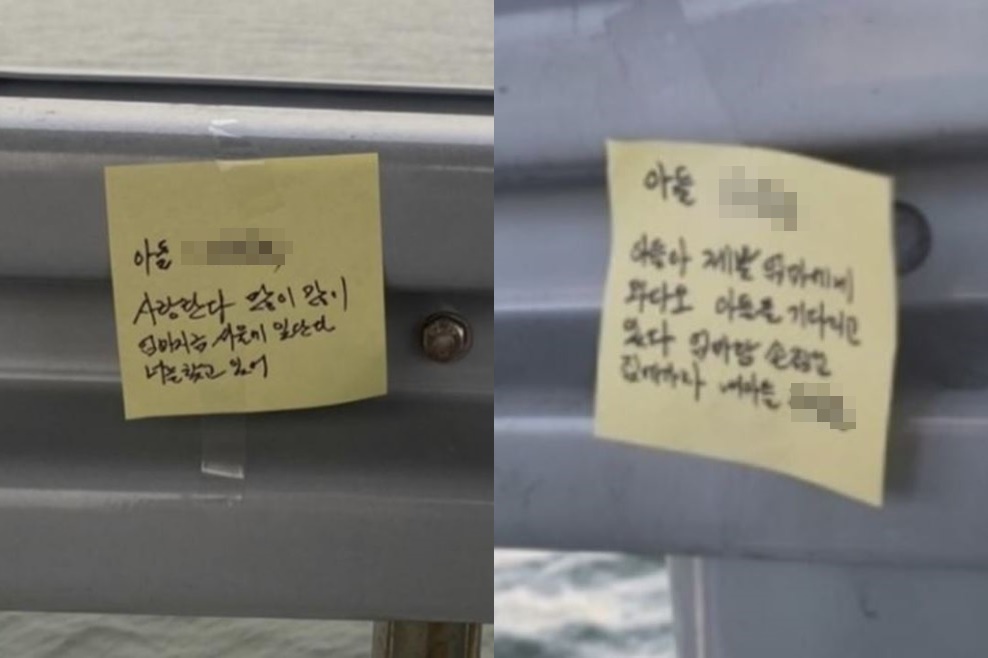 아들
사랑한다 많이 많이
엄마지금 서울이 일단난
너를찾고 있어
아들
아들아 제발 엄마에게
와다오 아들을 기다리고
있다 엄마랑 손잡고
집에가자 내아들